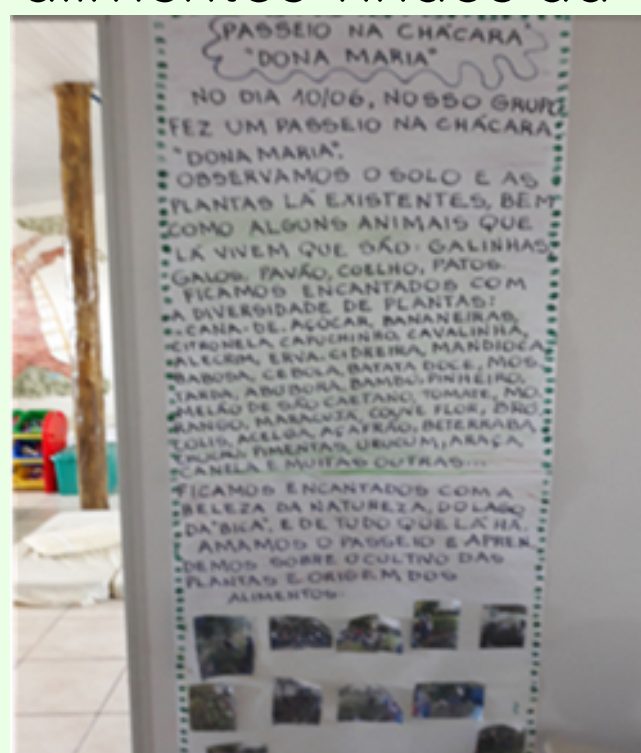 alimentos vindos da
"PASSEIO NA CHÁCARA
"DONA MARIA"
NO DIA 10/06, NOSSO GRUPO
FEZ UM PASSEIO NA CHÁCARA
"DONA MARIA".
OBSERVAMOS O SOLO E AS
PLANTAS LÁ EXISTENTES, BEM
COMO ALGUNS ANIMAIS QUE
LÁ VIVEM QUE SÃO: GALINHAS,
GALOS, PAVÃO, COELHO, PATOS.
FICAMOS ENCANTADOS COM
A DIVERSIDADE DE PLANTAS:
CANA-DE-AÇÚCAR, BANANEIRAS,
CITRONELA, CAPUCHINHO, CAVALINHA,
ALECRIM, ERVA-CIDREIRA, MANDIOCA,
BABOSA, CEBOLA, BATATA DOCE, MOS
TARDA, ABÓBORA, BAMBÚ, PINHEIRO,
MELÃO DE SÃO CAETANO, TOMATE, MO
RANGO, MARACUJÁ, COUVE FLOR, BRÓ
COLIS, ACELGA, AÇAFRÃO, BETERRABA,
PIMENTAS, URUCUM, ARAÇÁ
CANELA E MUITAS OUTRAS...
FICAMOS ENCANTADOS COM A
BELEZA DA NATUREZA, DO LAGO
DA "BICA", E DE TUDO QUE LÁ HÁ.
AMAMOS O PASSEIO E APREN
DEMOS SOBRE O CULTIVO DAS
PLANTAS E ORIGEM DOS
ALIMENTOS.